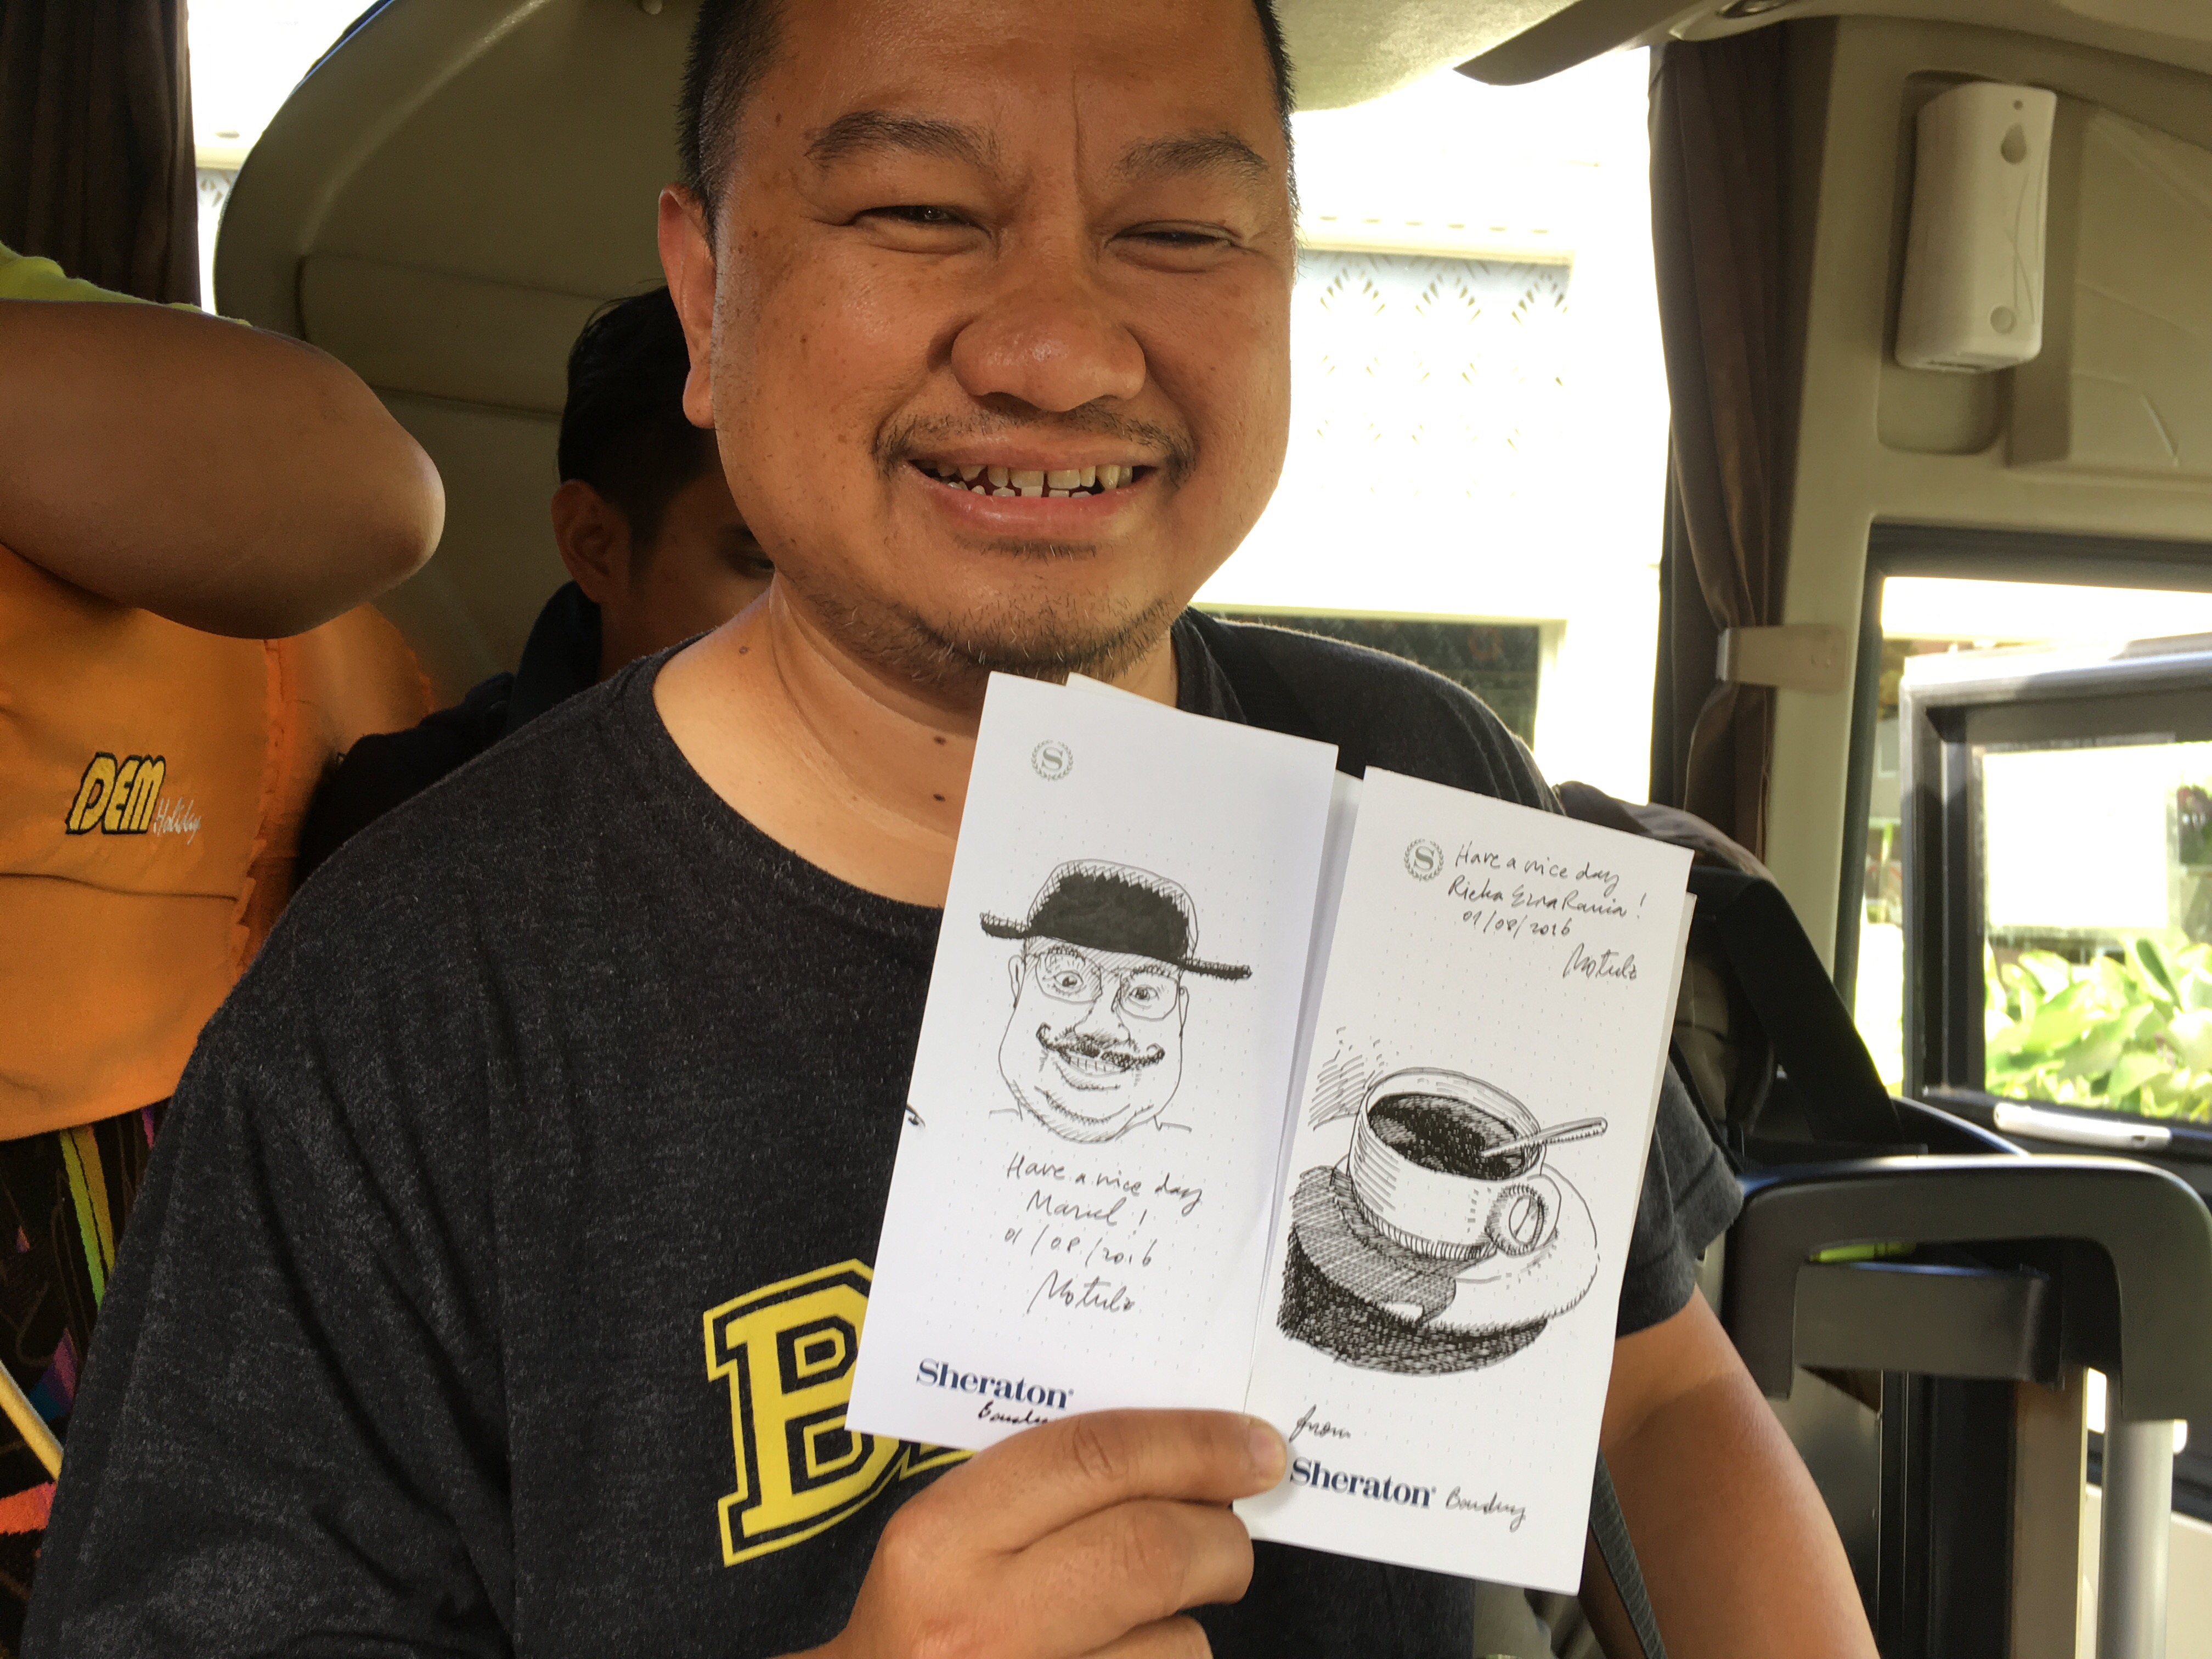 DEM
Holiday
B
S
Have a nice day
Mariel!
01/08/2016
Motulz
Sheraton
S
Have a nice day
Rieka Ezna Rania!
01/08/2016
Motulz
from
Sheraton Bandung